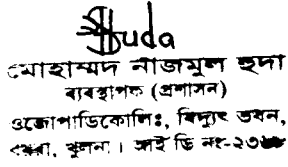 Huda
মোহাম্মদ নাজমুল হুদা
ব্যবস্থাপক (প্রশাসন)
ওজোপাডিকোলিঃ, বিদ্যুৎ ভবন,
বয়রা, খুলনা। আই ডি নং-২৩